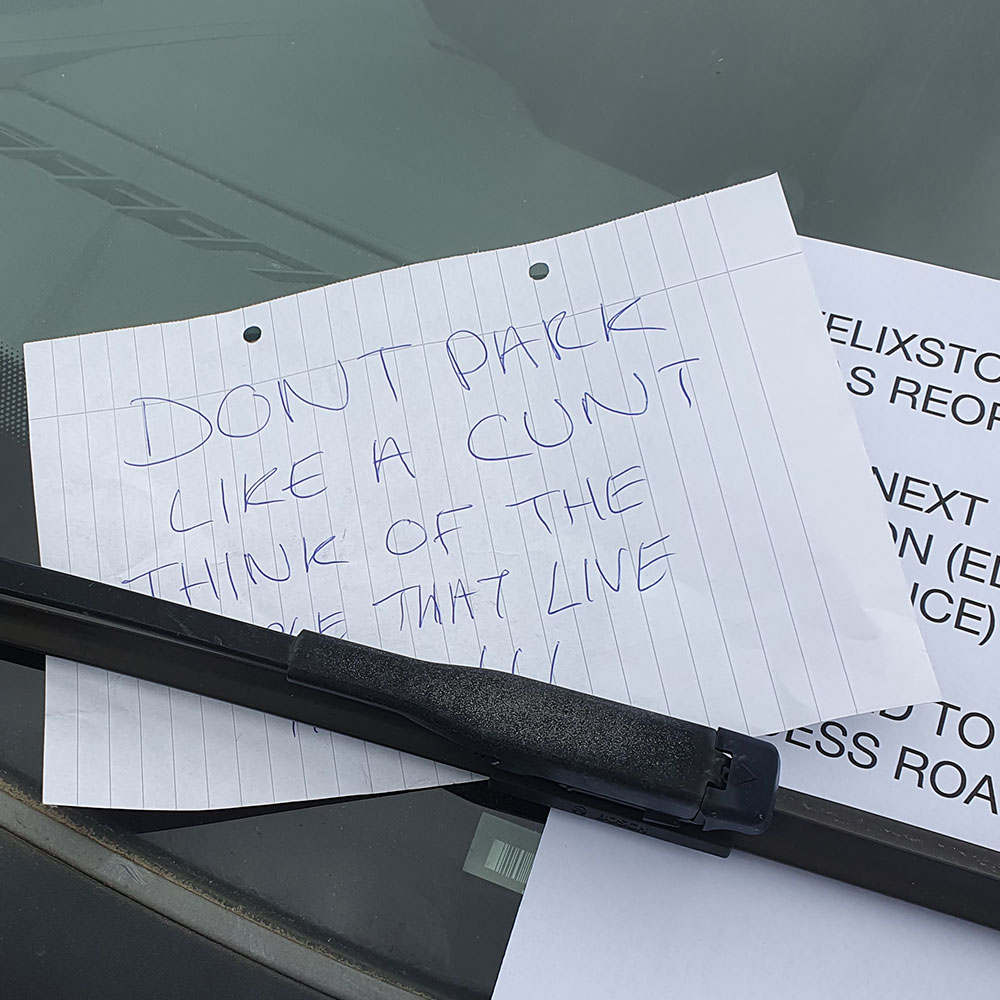 DONT PARK
LIKE A CUNT
THINK OF THE
THAT LIVE
!!!
ELIXSTO
S REOP
NEXT
ON (EL
ICE)
D TO
ESS ROA